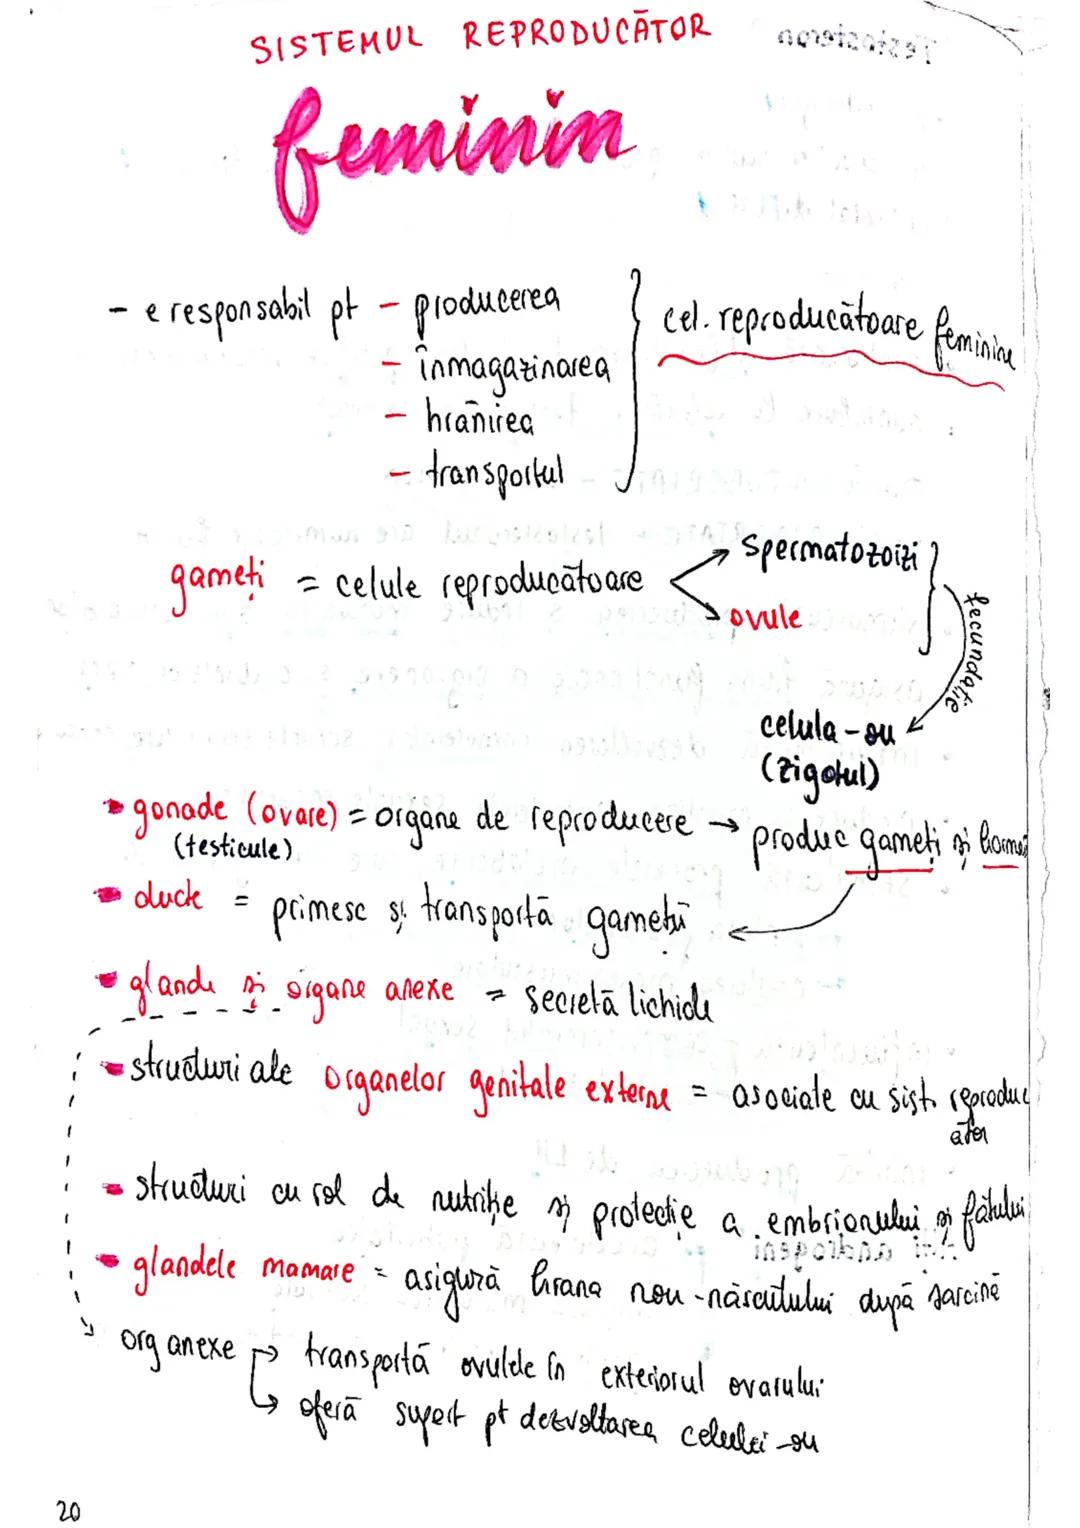 SISTEMUL REPRODUCĂTOR
feminin
- e responsabil pt - producerea
- înmagazinarea
- hrănirea
- transportul
cel. reproducătoare feminine
gameți = celule reproducătoare
spermatozoizi
ovule
fecundație
celula-ou
(zigotul)
gonade (ovare) = organe de reproducere → produc gameți și
(testicule)
ducte = primesc și transportă gameții
glande și organe anexe = secretă lichide
structuri ale organelor genitale externe = asociate cu sist. reproduc
ător
structuri cu rol de nutriție și protecție a embrionului și fătului
glandele mamare = asigură hrana nou-născutului după sarcină
org anexe → transportă ovulele în exteriorul ovarului
↳ oferă suport pt dezvoltarea celulei-ou
20